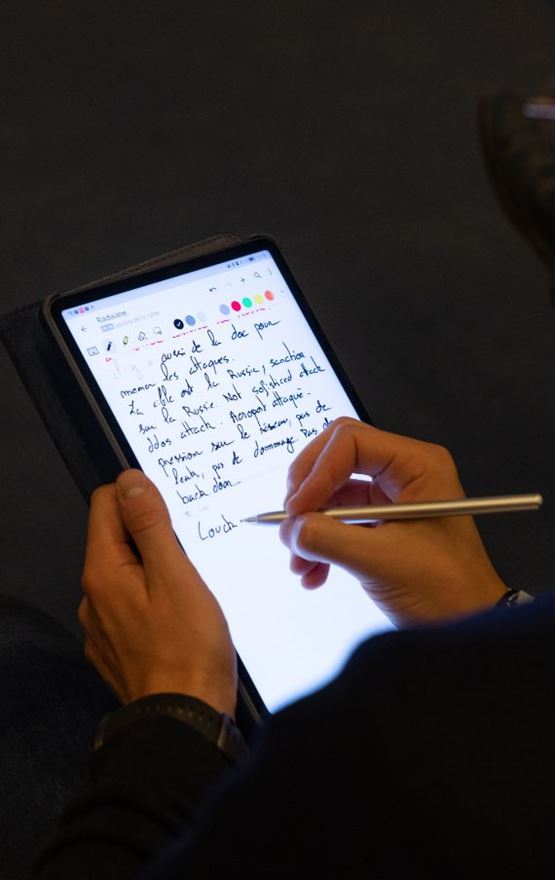 Radware
aussi de la doc pour
mener les attaques.
La cible est la Russie, sanction
sur la Russie. Not sofisticed attack
ddos attack. Aeroport attaqué.
pression sur le réseau, pas de
leak, pas de dommage. Pas de
back door...
Couch